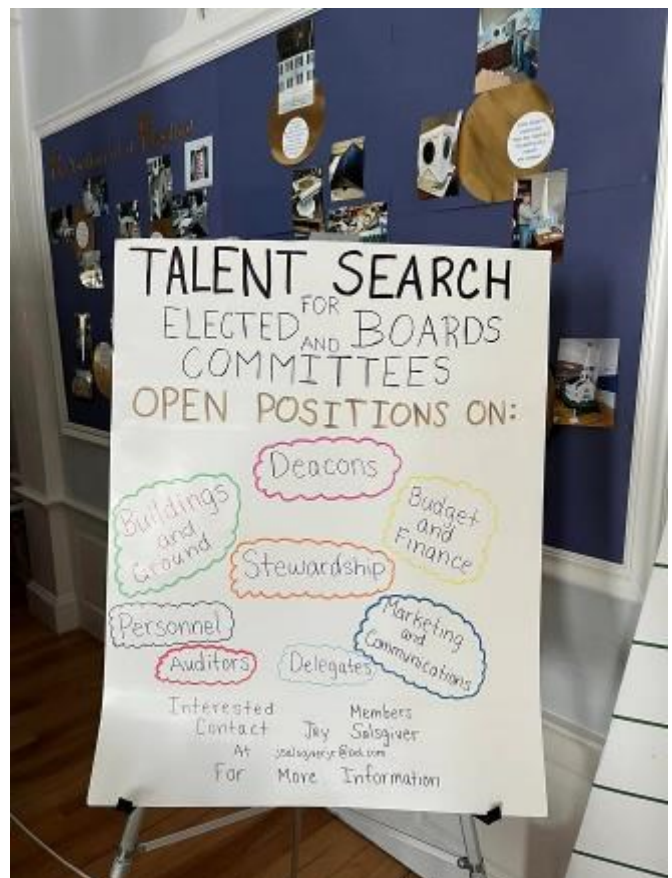 TALENT SEARCH
FOR
ELECTED AND BOARDS
COMMITTEES
OPEN POSITIONS ON:
Deacons
Buildings
and
Ground
Budget
and
Finance
Stewardship
Personnel
Marketing
and
Communications
Auditors
Delegates
Interested Members
Contact Jay Salsgiver
At
For More Information